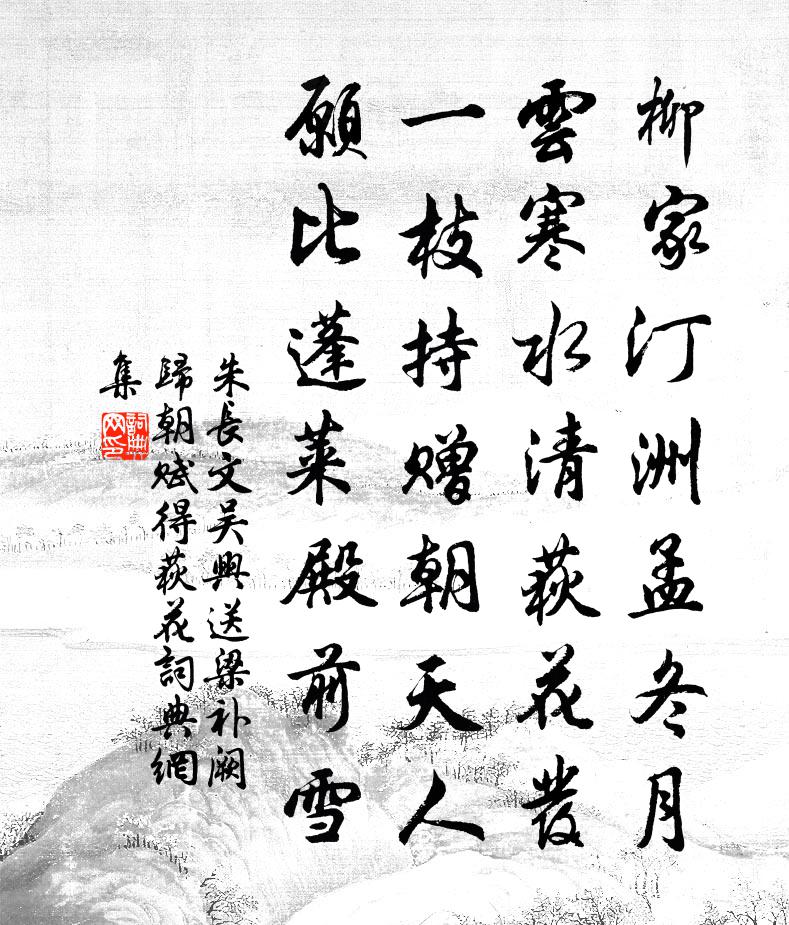 柳家汀洲孟冬月
雲寒水清荻花發
一枝持赠朝天人
願比蓬莱殿前雪
朱長文吴興送梁补阙
歸朝赋得荻花詞典網
集
詞典
网印